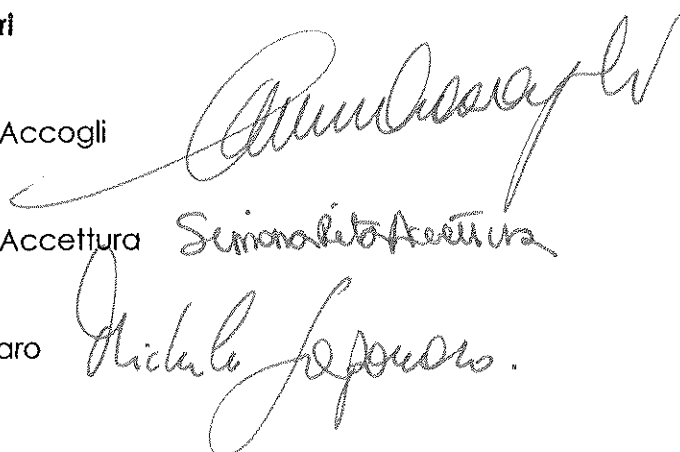 ri
Accogli
Accettura Simona Rita Accettura
aro Michele Saponaro.